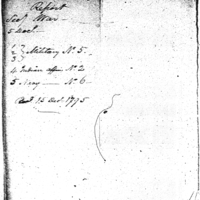 Report
Secy War
5 Decr.
1
2 } Military No. 5.
3
4 Indian affrs No. 2
5 Navy — No. 6.
Recd. 15 Decr. 1795